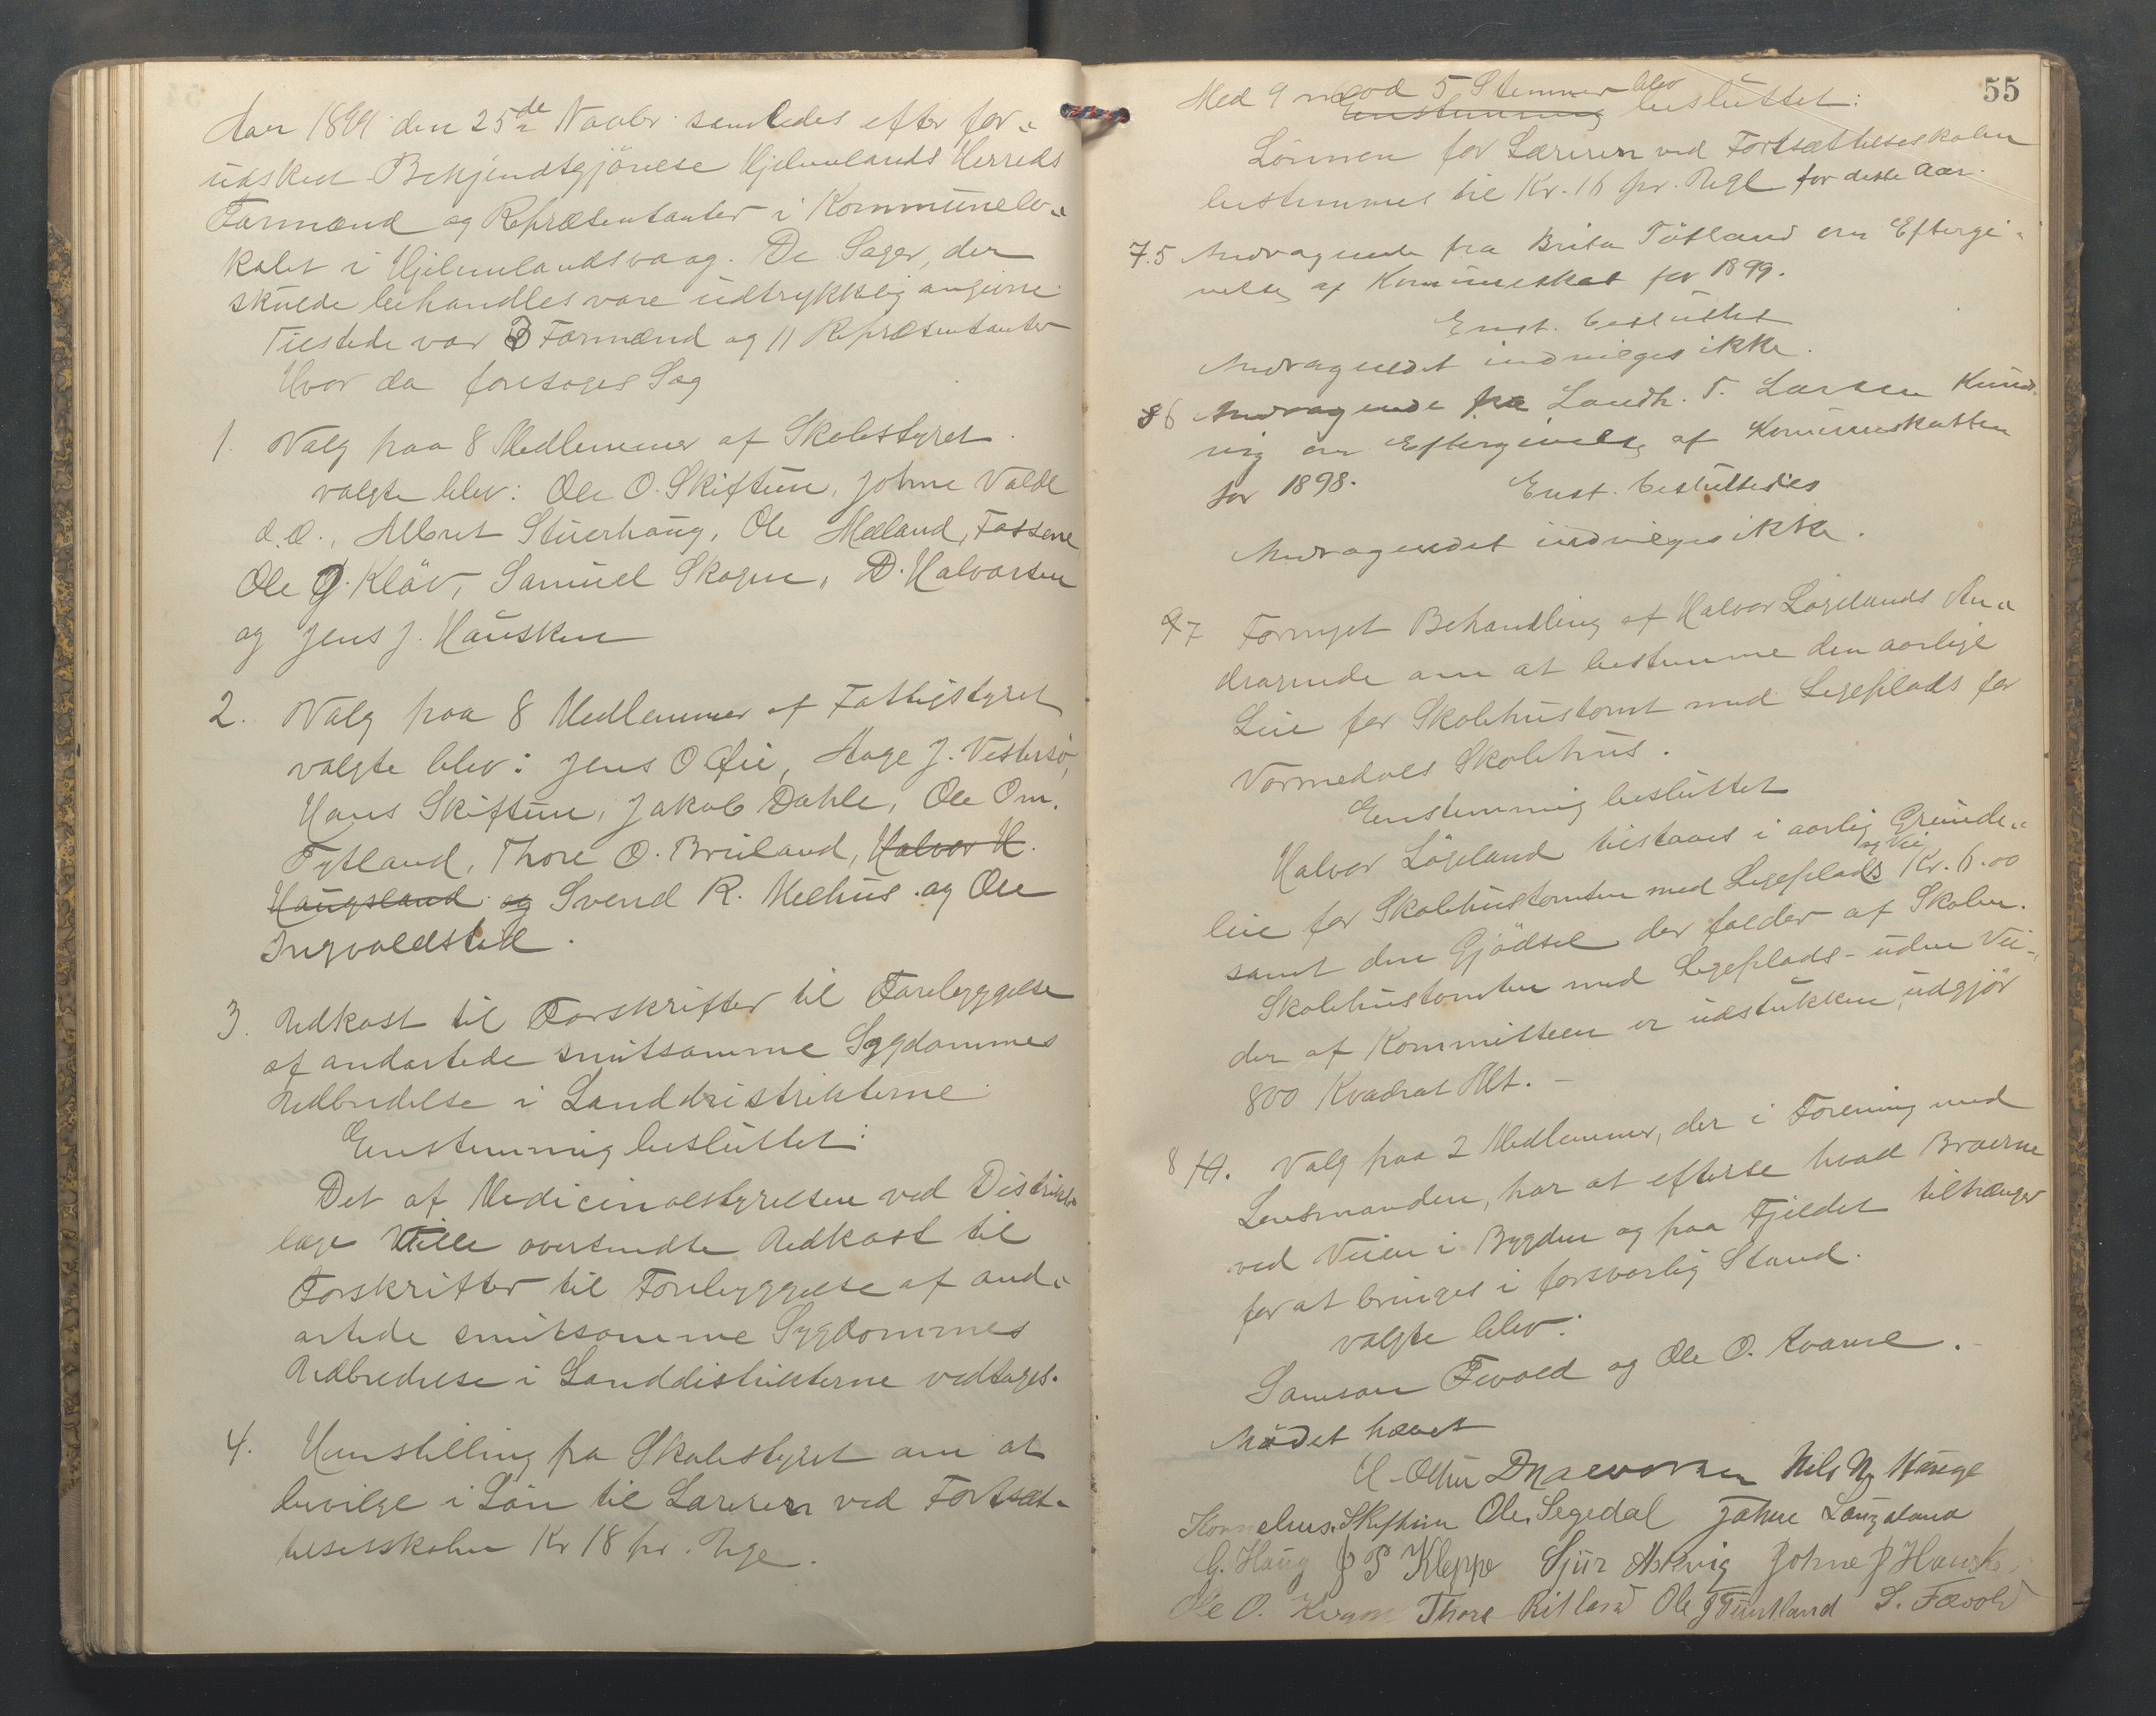 Aar 1899 den 25de Novbr. samledes efter for-
udskeet Bekjendtgjörelse Hjelmelands Herreds
Formænd og Repræsentanter i Kommunelo-
kalet i Hjelmelandsvaag. De Sager, der
skulde behandles vare udtrykkelig angivne
Tilstede var 3 Formænd og 11 Repræsentanter
Hvor da foretoges Sag
1. Valg paa 8 Medlemmer af Skolestyret.
valgte blev: Ole O. Skiftun, Johne Valde
d.Æ., Albret Stuerhaug, Ole Mæland, Fossene
Ole J. Kläv, Samuel Skogen, D. Halvorsen
og Jens J. Hausken
2. Valg paa 8 Medlemmer af Fattigstyret
valgte blev: Jens O Øie, Aage J. Vestersö,
Hans Skiftun, Jakob Dahle, Ole Om.
Tytland, Thore O. Bruland, Halvor H.
Haugsland og Svend R. Melhus og Ole
Ingvaldstad.
3. Udkast til Forskrifter til Forebyggelse
af ondartede smitsomme Sygdommes
Udbredelse i Landdistrikterne
Enstemmig besluttet:
Det af Medicinalstyrelsen ved Distrikts-
læge Wille oversendte Udkast til
Forskrifter til Forebyggelse af ond-
artede smitsomme Sygdommes
Udbredelse i Landdistrikterne vedtages.
4. Henstilling fra Skolestyret om at
bevilge i Lön til Læreren ved Fortsæt-
telsesskolen Kr 18 pr. Uge.
55
Med 9 mod 5 Stemmer blev
Enstemmig besluttet:
Lönnen for Læreren ved Fortsættelsesskolen
bestemmes til Kr. 16 pr. Uge for dette Aar.
7.5 Andragende fra Brita Tötland om Eftergi-
velse af Kommuneskat for 1899.
Enst. besluttet
Andragendet indvilges ikke.
8 6 Andragende fra Landh. T. Larsen
om Eftergivelse af Kommuneskatten
for 1898. Enst. besluttedes
Andragendet indvilges ikke.
9 7 Fornyet Behandling af Halvor Lögelands An-
dragende om at bestemme den aarlige
Leie for Skolehustomt med Legeplads for
Vormedals Skolehus.
Enstemmig besluttet
Halvor Lögeland tilstaaes i aarlig Grunde-
leie for Skolehustomten med Legeplads og Vei Kr. 6.00
samt den Gjödsel der falder af Skolen.
Skolehustomten med Legeplads - uden Vei -,
der af Kommitteen er udstukken, udgjör
800 Kvadrat Alt. -
8 10. Valg paa 2 Medlemmer, der i Forening med
Lensmanden, har at efterse hvad Broerne
ved Veien i Bygden og paa Fjeldet tiltrænger
for at bringes i forsvarlig Stand.
valgte blev:
Samson Fevold og Ole O. Kvame.-
Mödet hævet
D Halvorsen Nils N. Hauge
Kornelius Skiftun Ole Segedal Johne Laugaland
G. Haug P Kleppe Sjur Johne J Hausken
Ole O. Kvame Thore Ritland Ole J Funtland S. Fævold